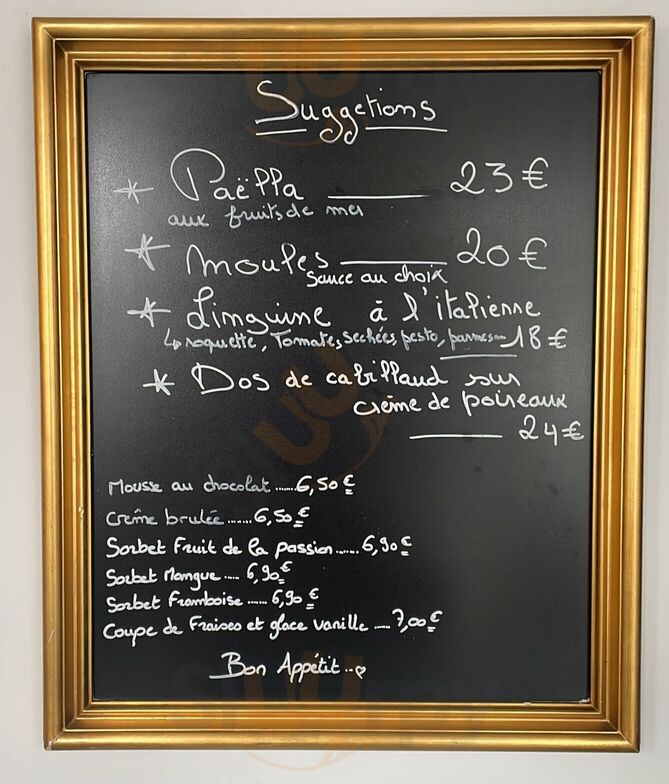 Suggetions
* Paëlla —— 23€
aux fruits de mer
* Moules —— 20€
Sauce au choix
* Linguine à l'italienne
↳ roquette, Tomates sechées, pesto, parmesan — 18€
* Dos de cabillaud sur
crème de poireaux
—— 24€
Mousse au chocolat ...... 6,50€
Crème brulée ....... 6,50€
Sorbet Fruit de la passion ...... 6,90€
Sorbet Mangue .... 6,90€
Sorbet Framboise ...... 6,90€
Coupe de Fraises et glace vanille .... 7,00€
Bon Appétit..♡